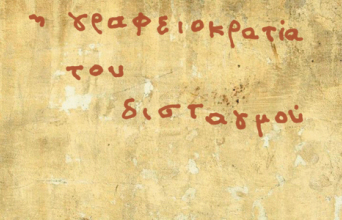 η γραφειοκρατία
του
δισταγμού